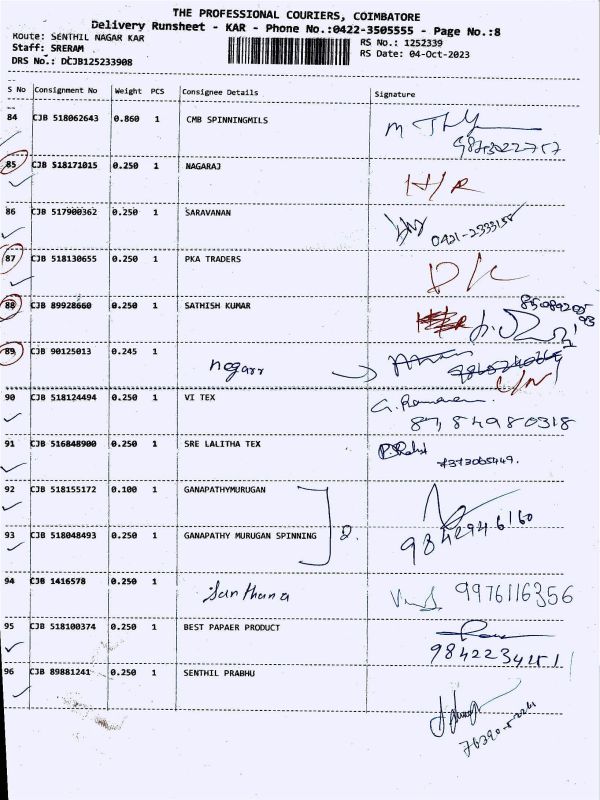 THE PROFESSIONAL COURIERS, COIMBATORE
Delivery Runsheet - KAR - Phone No.:0422-3505555 - Page No.:8
Route: SENTHIL NAGAR KAR
RS No.: 1252339
Staff: SRERAM
RS Date: 04-Oct-2023
DRS No.: DCJB125233908
S No Consignment No Weight PCS Consignee Details Signature
84 CJB 518062643 0.860 1 CMB SPINNINGMILS
85 CJB 518171015 0.250 1 NAGARAJ
86 CJB 517900362 0.250 1 SARAVANAN
0421-2333158
87 CJB 518130655 0.250 1 PKA TRADERS
88 CJB 89928660 0.250 1 SATHISH KUMAR
89 CJB 90125013 0.245 1
90 CJB 518124494 0.250 1 VI TEX
8784980318
91 CJB 516848900 0.250 1 SRE LALITHA TEX
7373065449.
92 CJB 518155172 0.100 1 GANAPATHYMURUGAN
93 CJB 518048493 0.250 1 GANAPATHY MURUGAN SPINNING
9842946160
94 CJB 1416578 0.250 1 Santhana 9976116356
95 CJB 518100374 0.250 1 BEST PAPAER PRODUCT
9842234151
96 CJB 89881241 0.250 1 SENTHIL PRABHU